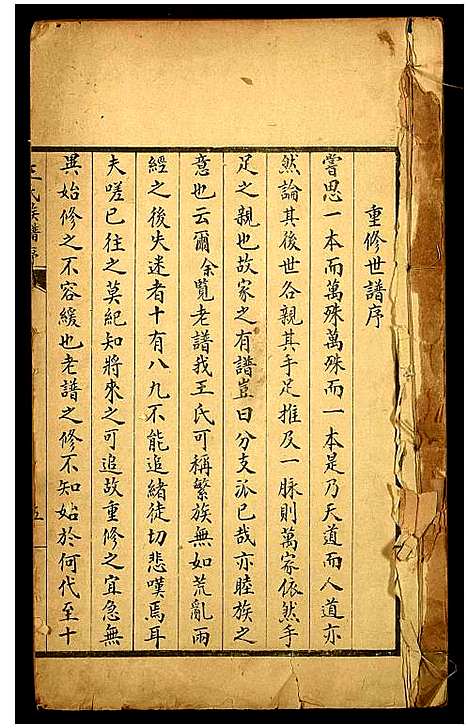 重修世譜序
嘗思一本而萬殊萬殊而一本是乃天道而人道亦
然論其後世各親其手足推及一脉則萬家依然手
足之親也故家之有譜豈曰分支派已哉亦睦族之
意也云爾余覧老譜我王氏可稱繁族無如荒亂兩
經之後失迷者十有八九不能追緒徒切悲嘆焉耳
夫嗟已往之莫紀知將來之可追故重修之宜急無
異始修之不容緩也老譜之修不知始於何代至十
王氏族譜序